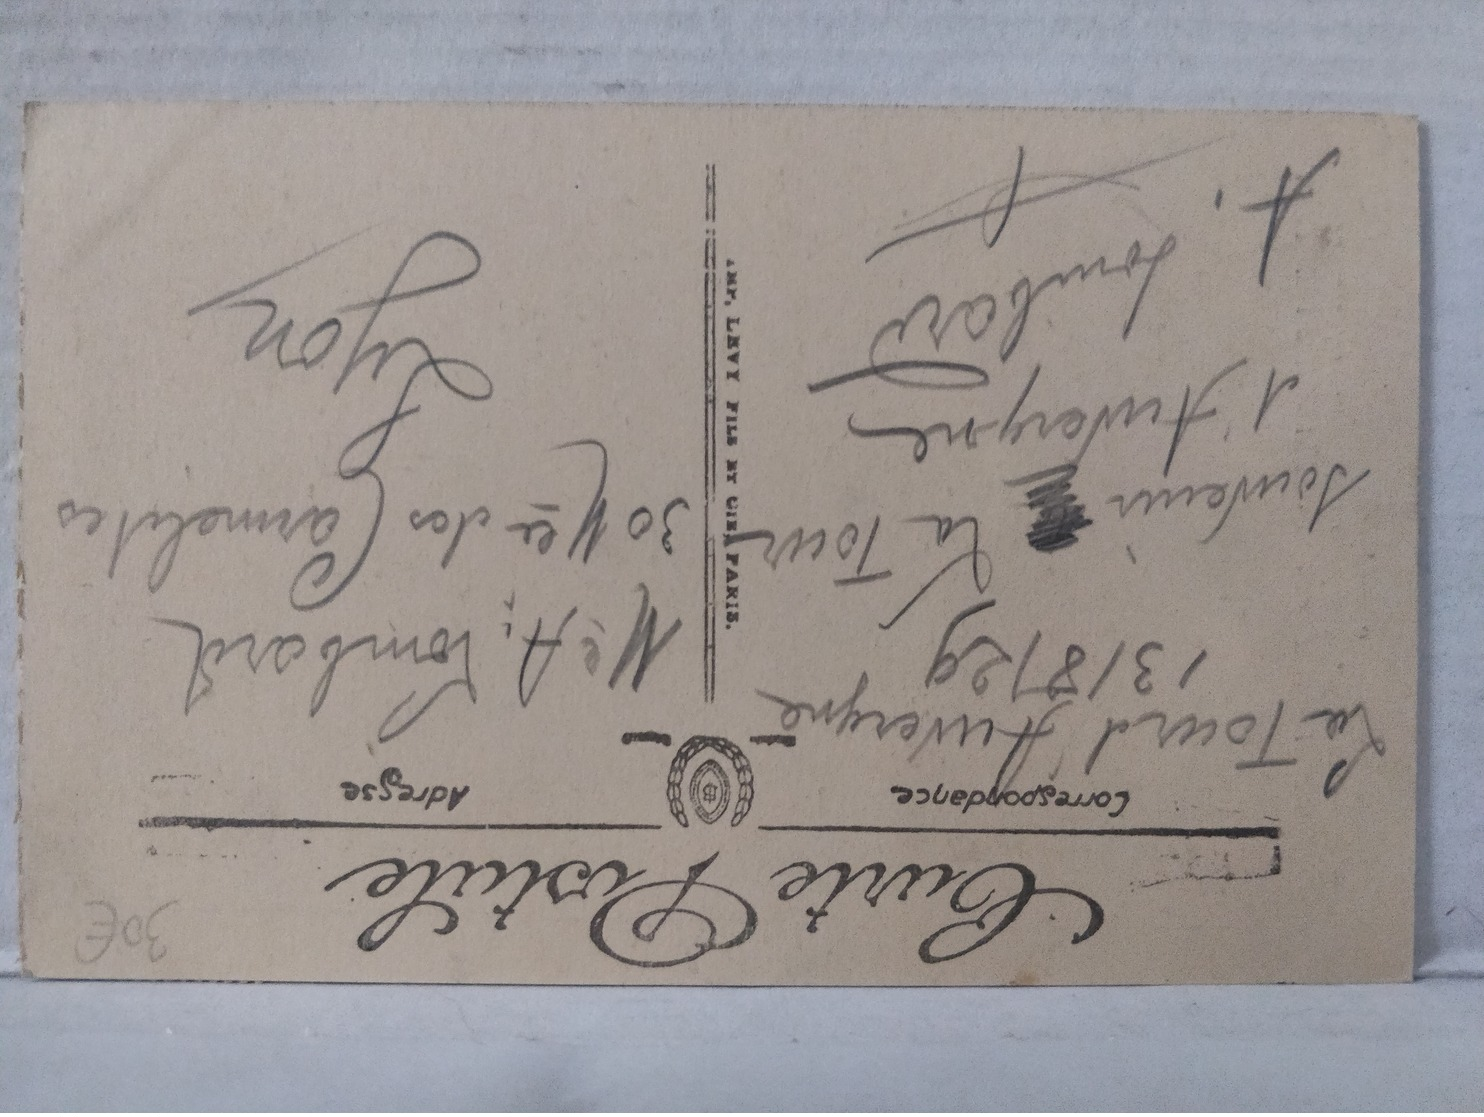 Carte Postale
Correspondance
La Tour d'Auvergne
13/8/29
Souvenir La Tour
d'Auvergne
A. Lombard
IMP. LEVY FILS ET CIE, PARIS.
Adresse
Me A. Lombard
30 Mée des Carmelites
Lyon
30€